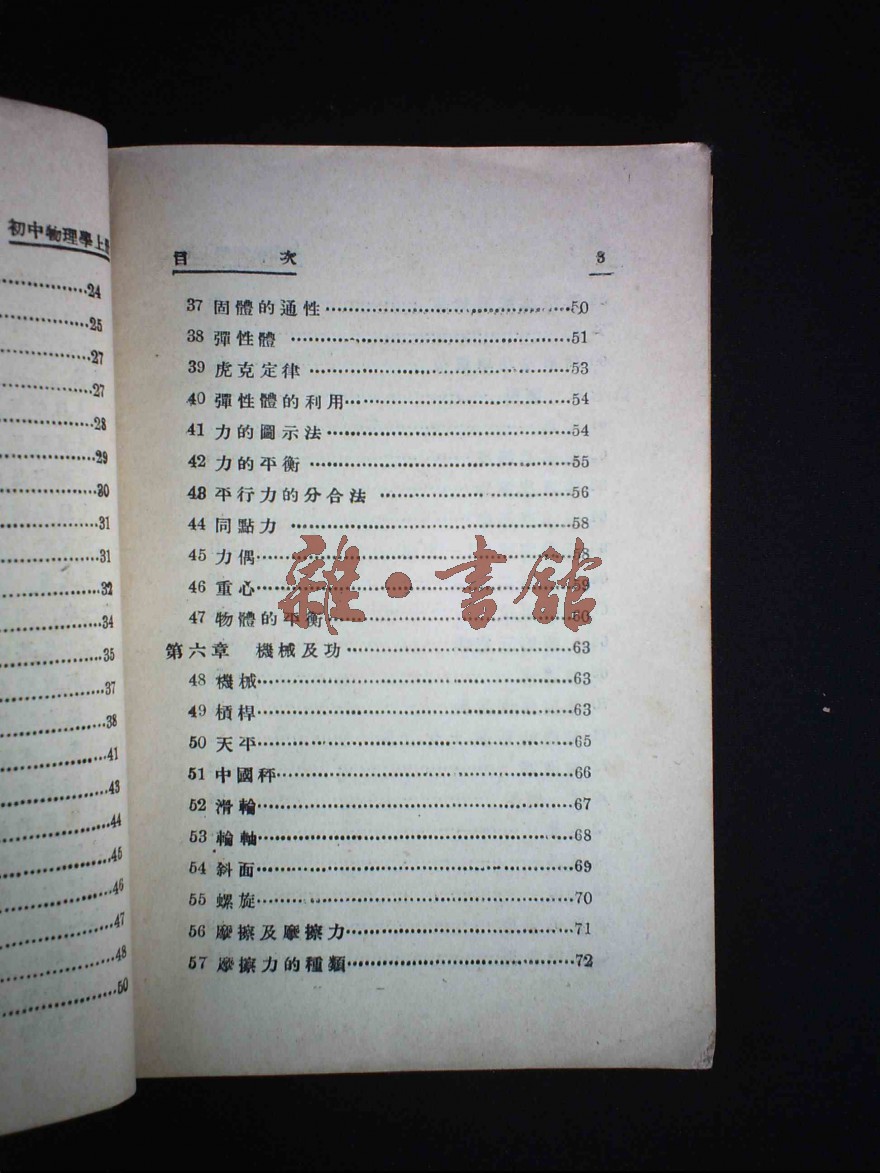 初中物理學上
24
25
27
27
28
29
30
31
31
32
34
35
37
38
41
43
44
45
46
47
48
50
目 次 3
37 固體的通性 50
38 彈性體 51
39 虎克定律 53
40 彈性體的利用 54
41 力的圖示法 54
42 力的平衡 55
43 平行力的分合法 56
44 同點力 58
45 力偶 58
46 重心 59
47 物體的平衡 60
第六章 機械及功 63
48 機械 63
49 槓桿 63
50 天平 65
51 中國秤 66
52 滑輪 67
53 輪軸 68
54 斜面 69
55 螺旋 70
56 摩擦及摩擦力 71
57 摩擦力的種類 72
雜·書館